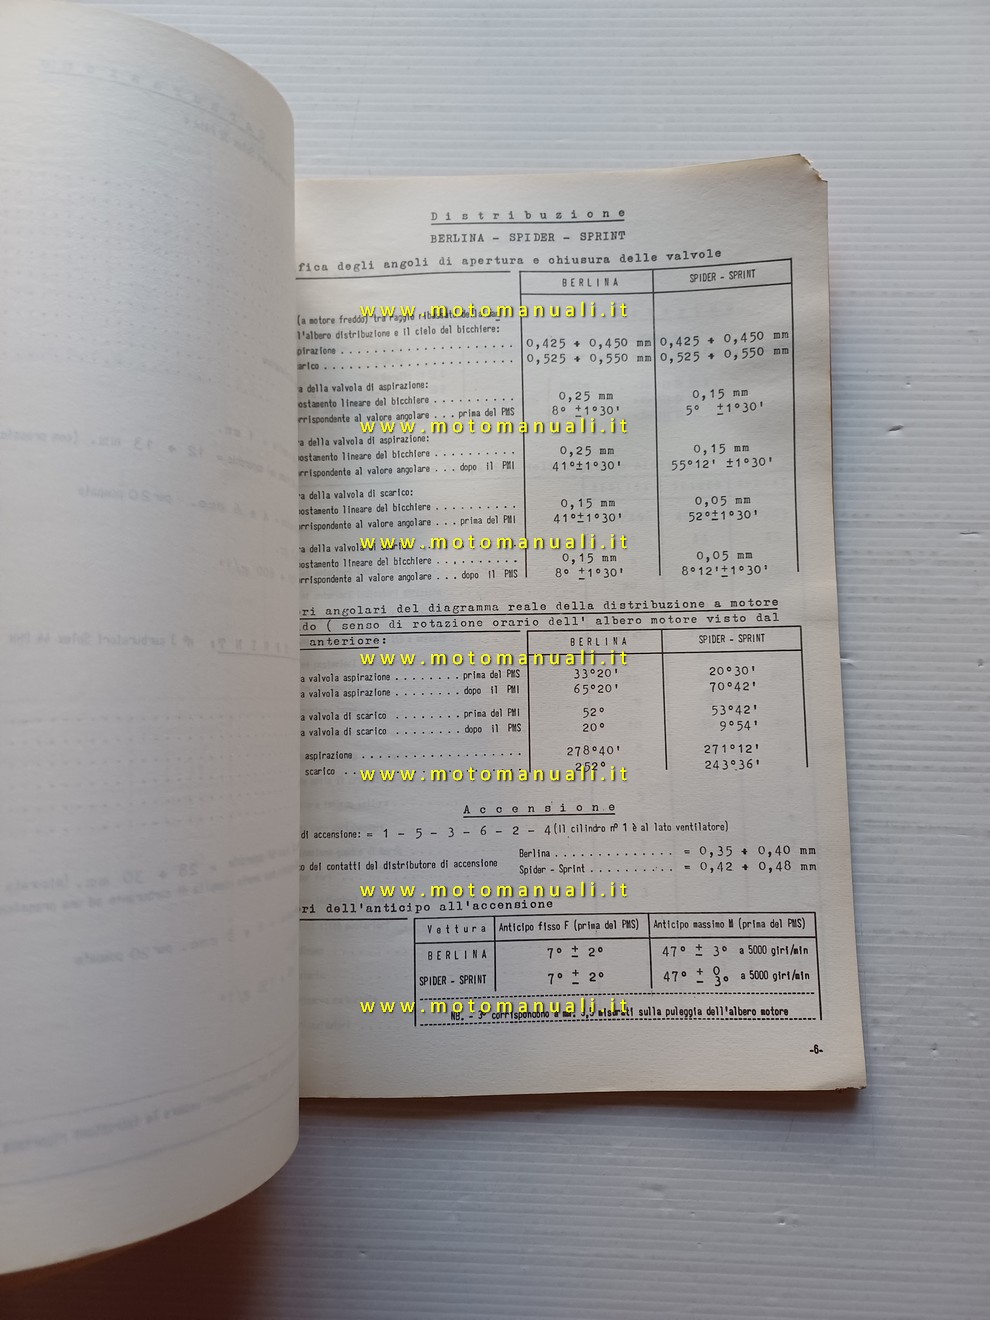 D i s t r i b u z i o n e
BERLINA - SPIDER - SPRINT
fica degli angoli di apertura e chiusura delle valvole
BERLINA SPIDER - SPRINT
www.motomanuali.it
(a motore freddo) tra raggio
l'albero distribuzione e il cielo del bicchiere:
pirazione . . . . . . . . . . . . . . . . . . . . . 0,425 ÷ 0,450 mm 0,425 ÷ 0,450 mm
arico . . . . . . . . . . . . . . . . . . . . . . . 0,525 ÷ 0,550 mm 0,525 ÷ 0,550 mm
a della valvola di aspirazione:
ostamento lineare del bicchiere . . . . . . . . . . 0,25 mm 0,15 mm
rrispondente al valore angolare . . . prima del PMS 8° ±1°30' 5° ±1°30'
www.motomanuali.it
ra della valvola di aspirazione:
ostamento lineare del bicchiere . . . . . . . . . . 0,25 mm 0,15 mm
rrispondente al valore angolare . . . dopo il PMI 41°±1°30' 55°12' ±1°30'
ra della valvola di scarico:
ostamento lineare del bicchiere . . . . . . . . . . 0,15 mm 0,05 mm
rrispondente al valore angolare . . . prima del PMI 41°±1°30' 52°±1°30'
www.motomanuali.it
ra della valvola di scarico
ostamento lineare del bicchiere . . . . . . . . . . 0,15 mm 0,05 mm
rrispondente al valore angolare . . . dopo il PMS 8° ±1°30' 8°12'±1°30'
ri angolari del diagramma reale della distribuzione a motore
do ( senso di rotazione orario dell' albero motore visto dal
anteriore:
BERLINA SPIDER - SPRINT
www.motomanuali.it
a valvola aspirazione . . . . . . . . prima del PMS 33°20' 20°30'
a valvola aspirazione . . . . . . . . dopo il PMI 65°20' 70°42'
a valvola di scarico . . . . . . . . prima del PMI 52° 53°42'
a valvola di scarico . . . . . . . . dopo il PMS 20° 9°54'
aspirazione . . . . . . . . . . . . . . . . . . . . 278°40' 271°12'
scarico . . 252° 243°36'
www.motomanuali.it
A c c e n s i o n e
di accensione: = 1 - 5 - 3 - 6 - 2 - 4 (il cilindro n° 1 è al lato ventilatore)
o dei contatti del distributore di accensione
Berlina . . . . . . . . . . . . . . = 0,35 ÷ 0,40 mm
Spider - Sprint . . . . . . . . . . = 0,42 ÷ 0,48 mm
www.motomanuali.it
ri dell'anticipo all'accensione
Vettura Anticipo fisso F (prima del PMS) Anticipo massimo M (prima del PMS)
BERLINA 7° ± 2° 47° ± 3° a 5000 giri/min
SPIDER - SPRINT 7° ± 2° 47° + 0 - 3° a 5000 giri/min
www.motomanuali.it
NB. - 3° corrispondono a mm. misurati sulla puleggia dell'albero motore
-6-